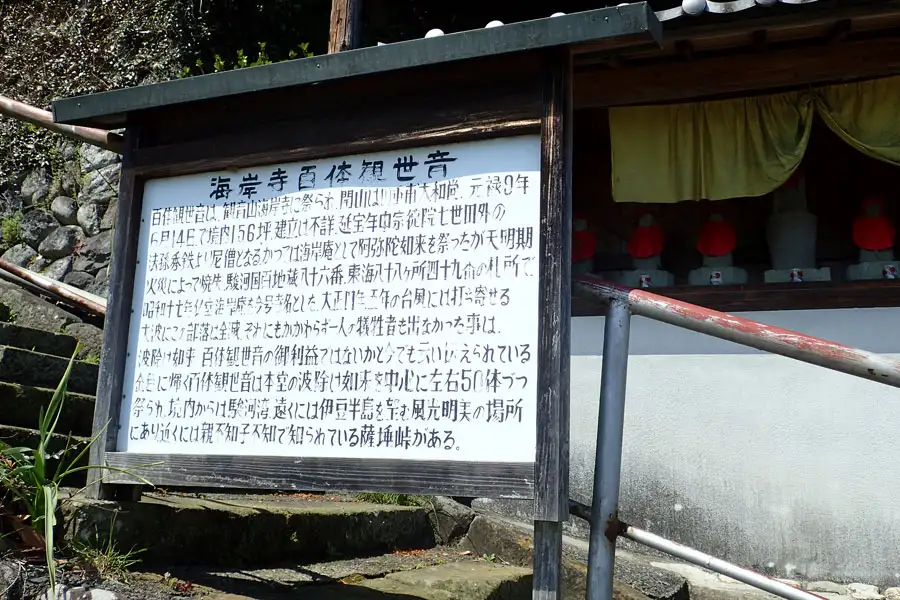 海岸寺百体観世音
百体観世音は、観音山海岸寺に祭られ、開山は 大和尚、元禄9年
6月14日で境内156坪、建立は不詳、延宝年中宗徳院七世団外の
法孫 鉄より尼僧となるかつては海岸庵として阿弥陀如来を祭ったが天明期
火災によって焼失、駿河国百地蔵八十六番、東海八十八ヶ所四十九 の札所で
昭和十七年 海岸庵を今号 とした、大正 年の台風には打ち寄せる
大波にこの部落は全 、それにもかかわらず一人の犠牲者も出なかった事は、
波除け如来 百体観世音の御利益ではないかと今でも言い伝えられている
金色に輝く百体観世音は本堂の波除け如来を中心に左右50体づつ
祭られ、境内からは駿河湾、遠くには伊豆半島を望む風光明美の場所
にあり近くには親不知子不知で知られている薩埵峠がある。